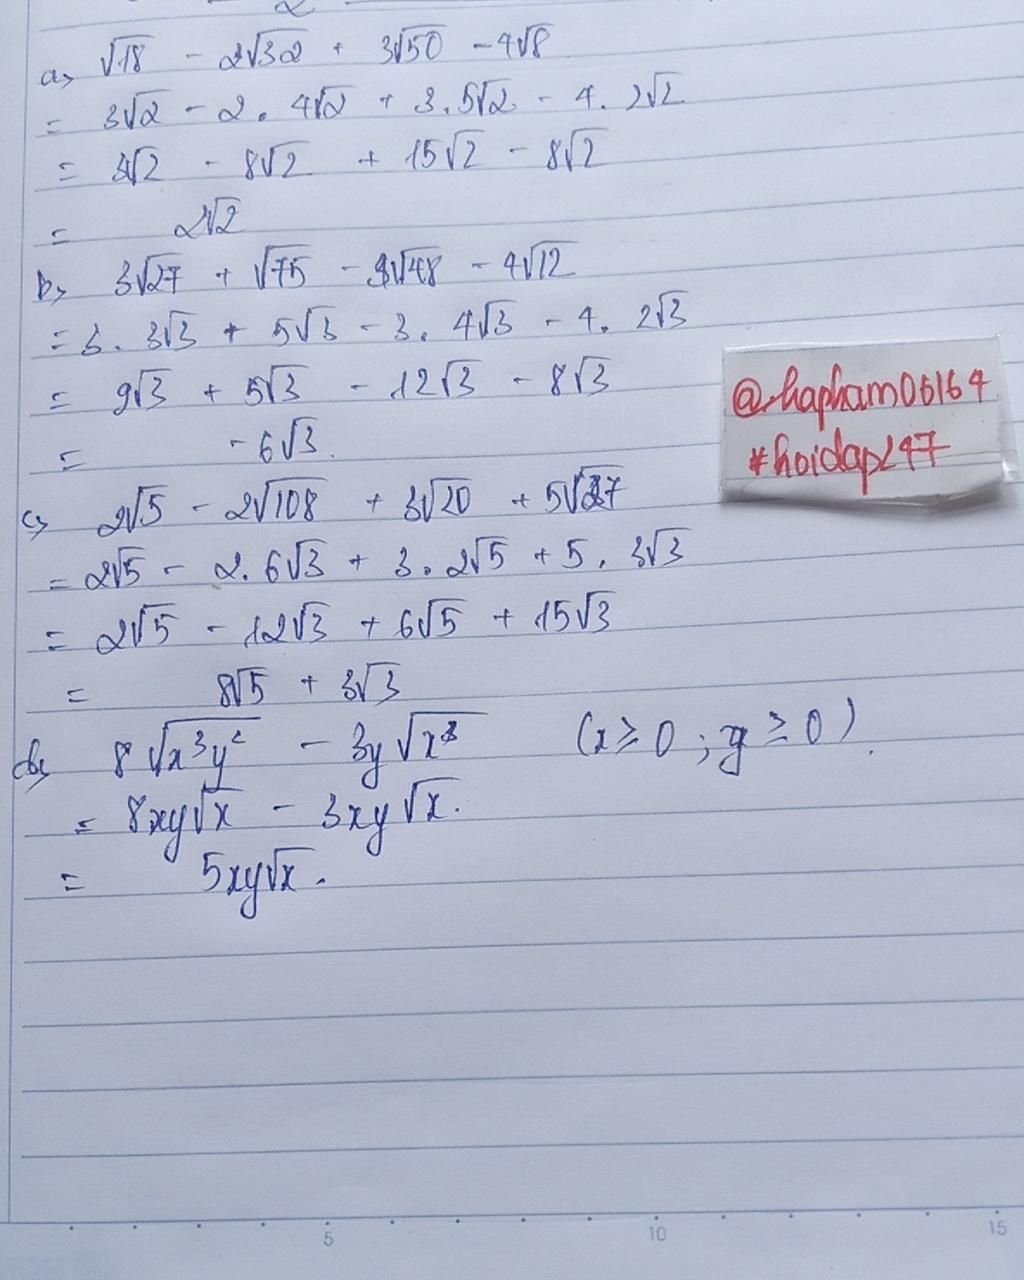 a, √18 - 2√32 + 3√50 - 4√8
= 3√2 - 2. 4√2 + 3.5√2 - 4. 2√2
= 3√2 - 8√2 + 15√2 - 8√2
= 2√2
b, 3√27 + √75 - 3√48 - 4√12
= 3. 3√3 + 5√3 - 3. 4√3 - 4. 2√3
= 9√3 + 5√3 - 12√3 - 8√3
= -6√3.
@hapham06164
#hoidap247
c, 2√5 - 2√108 + 3√20 + 5√27
= 2√5 - 2.6√3 + 3.2√5 + 5. 3√3
= 2√5 - 12√3 + 6√5 + 15√3
= 8√5 + 3√3
d, 8√x³y² - 3y√x³ (x ≥ 0 ; y ≥ 0).
= 8xy√x - 3xy√x.
= 5xy√x.
5 10 15